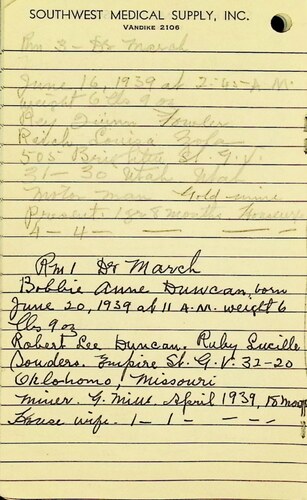 SOUTHWEST MEDICAL SUPPLY, INC.
VANDIKE 2106
Rm 3 - Dr March
June 16, 1939 at 2:45 A.M.
weight 6 lbs 9 oz
Roy Quinn Fowler
Louisa
505 St. G.V.
31 - 30 Utah Utah
Motor man Gold mine
Present 1 yr 8 months
4 - 4 - — — —
Rm 1 Dr March
Bobbie Anne Duncan, born
June 20, 1939 at 11 A.M. weight 6
lbs 9 oz
Robert Lee Duncan. Ruby Lucille
Souders. Empire St. G.V. 32-20
Oklohomo, Missouri
Miner. G. Mine. April 1939, 18 mos
House wife. 1 - 1 - - - -